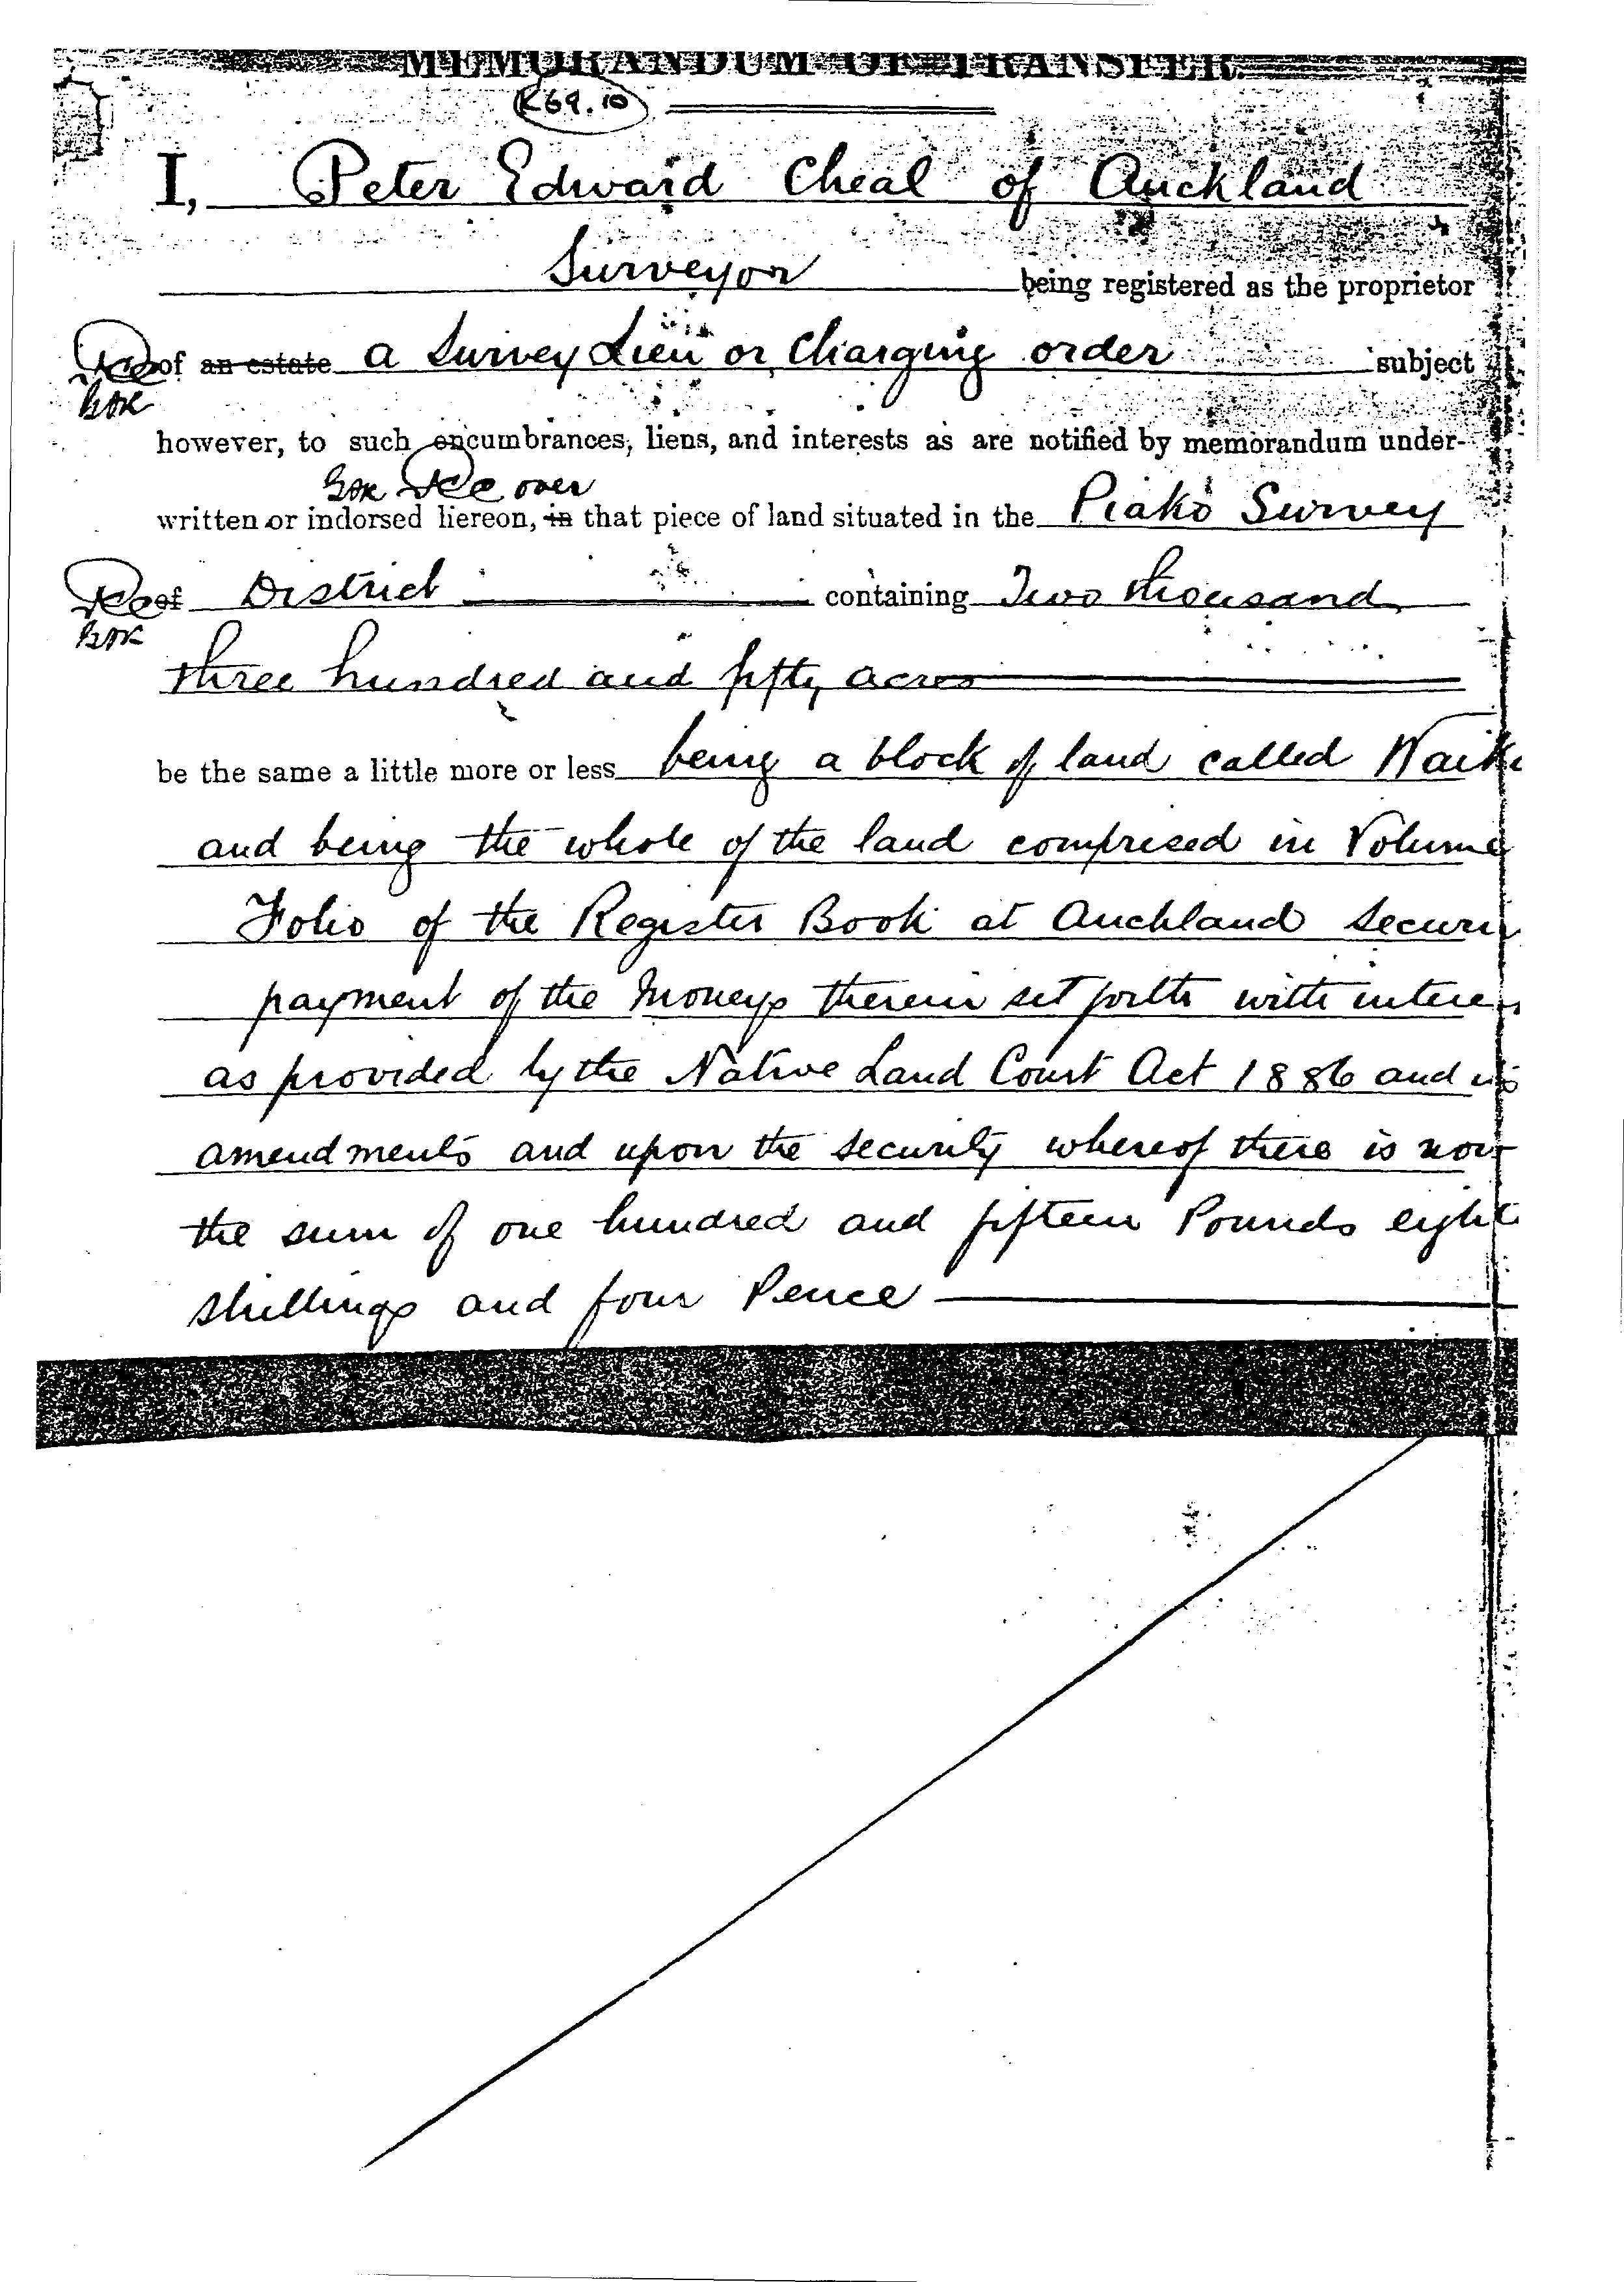 MEMORANDUM OF TRANSFER
K69.10
I, Peter Edward Cheal of Auckland
Surveyor being registered as the proprietor
of an estate a Survey Lien or Charging order subject
however, to such encumbrances, liens, and interests as are notified by memorandum under-
over
written or indorsed hereon, in that piece of land situated in the Piako Survey
of District containing Two thousand
three hundred and fifty acres
be the same a little more or less being a block of land called
and being the whole of the land comprised in Volume
Folio of the Register Book at Auckland
payment of the moneys therein set forth with
as provided by the Native Land Court Act 1886 and
amendments and upon the security whereof there is now
the sum of one hundred and fifteen Pounds eight
shillings and four Pence